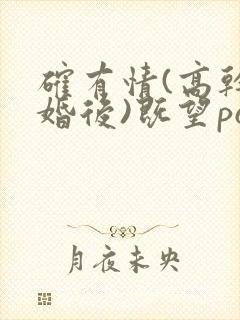 確有情(高幹
婚後)既望po
月夜未央